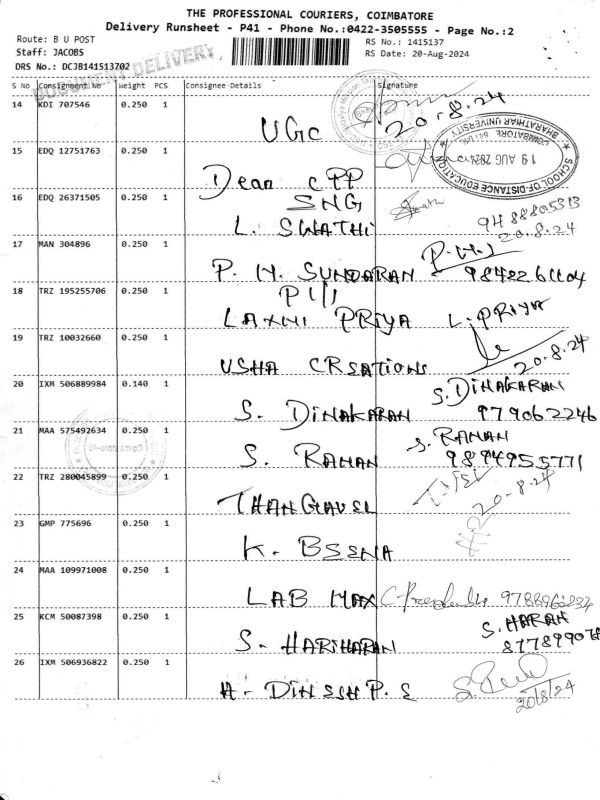 THE PROFESSIONAL COURIERS, COIMBATORE
Delivery Runsheet - P41 - Phone No.:0422-3505555 - Page No.:2
Route: B U POST
RS No.: 1415137
Staff: JACOBS
RS Date: 20-Aug-2024
DRS No.: DCJB141513702
DOCUMENT DELIVERY
S No Consignment No Weight PCS Consignee Details Signature
14 KDI 707546 0.250 1
UGC 20.8.24
15 EDQ 12751763 0.250 1
Dean CPP
SCHOOL OF DISTANCE EDUCATION
BHARATHIAR UNIVERSITY
COIMBATORE
19 AUG 2024
16 EDQ 26371505 0.250 1
SNG
L. SWATHI 9488805313
20.8.24
17 MAN 304896 0.250 1
P. N. SUNDARAN 9842261104
18 TRZ 195255706 0.250 1
LAXMI PRIYA L. PRIYA
19 TRZ 10032660 0.250 1
USHA CREATIONS 20.8.24
20 IXM 506889984 0.140 1
S. DINAKARAN S. DINAKARAN
979062246
21 MAA 575492634 0.250 1
S. RAMAN S. RAMAN
9894955771
22 TRZ 280045899 0.250 1
THANGAVEL 20-8-24
23 GMP 775696 0.250 1
K. BEENA
24 MAA 109971008 0.250 1
LAB MAX
25 KCM 50087398 0.250 1
S. HARIHARAN S. HARAN
26 IXM 506936822 0.250 1
A. DINESH P. S
20/8/24